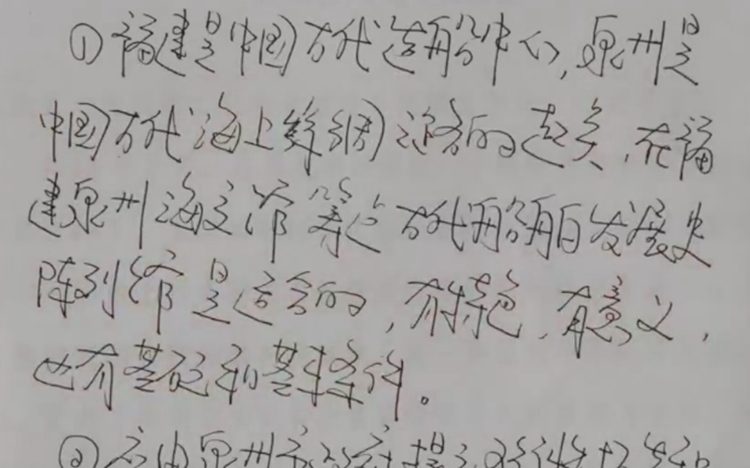 ①福建是中国古代造船中心,泉州是
中国古代海上丝绸道路的起点,在福
建泉州海交馆筹建古代船舶发展史
陈列馆是适合的,有特色,有意义,
也有基础和基本条件。
②应由泉州市政府提